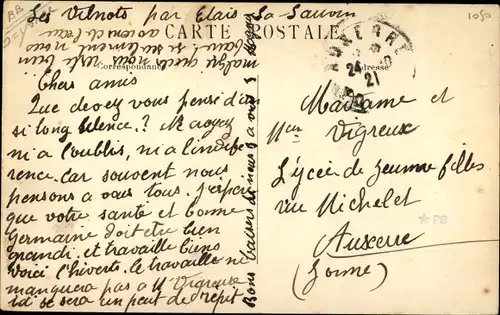 Les Vilnots par Etais La Sauvin
CARTE POSTALE
Correspondance
Adresse
AUXERRE
24
21
1050
Chers amis
Que devez vous pensé d'ici
si long silence.? Ne croyez
ni a l'oublis, ni a l'indife
rence. Car souvent nous
pensons a vous tous. J'espère
que votre santé et bonne
Germaine doit etre bien
grandi. et travaille biens
Voici l'hiverts. le travaille ne
manquera pas a M Vigreux
ici se sera un peut de repit
malgre quoi reste bien
Bons baisers de nous 3 a vous 3
Madame et
Vigreux
Lycée de jeunne filles
rue Michelet
Auxerre
(Yonne)